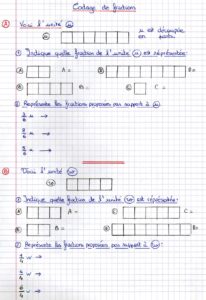 Codage de fraction
Ⓐ Voici l'unité u
u est découpée
en parts.
① Indique quelle fraction de l'unité u est représentée:
A = C =
B =
② Représente les fractions proposées par rapport à u
u →
u →
u →
Ⓑ Voici l'unité w
① Indique quelle fraction de l'unité w est représentée:
A = C =
B =
② Représente les fractions proposées par rapport à w:
w →
w →
w →